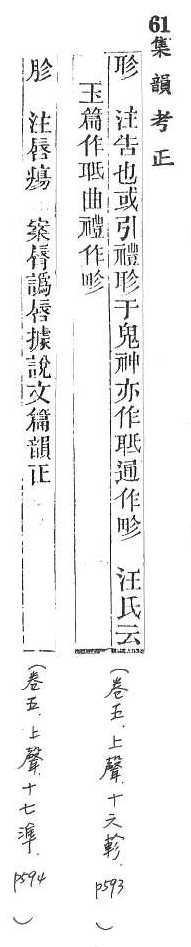 61集韻考正
聄 注告也或引禮聄于鬼神亦作通作畛 汪氏云
玉篇作曲禮作畛
胗 注唇瘍 案脣譌唇據說文篇韻正
(卷五.上聲.十六軫.p593)
(卷五.上聲.十七準.p594)